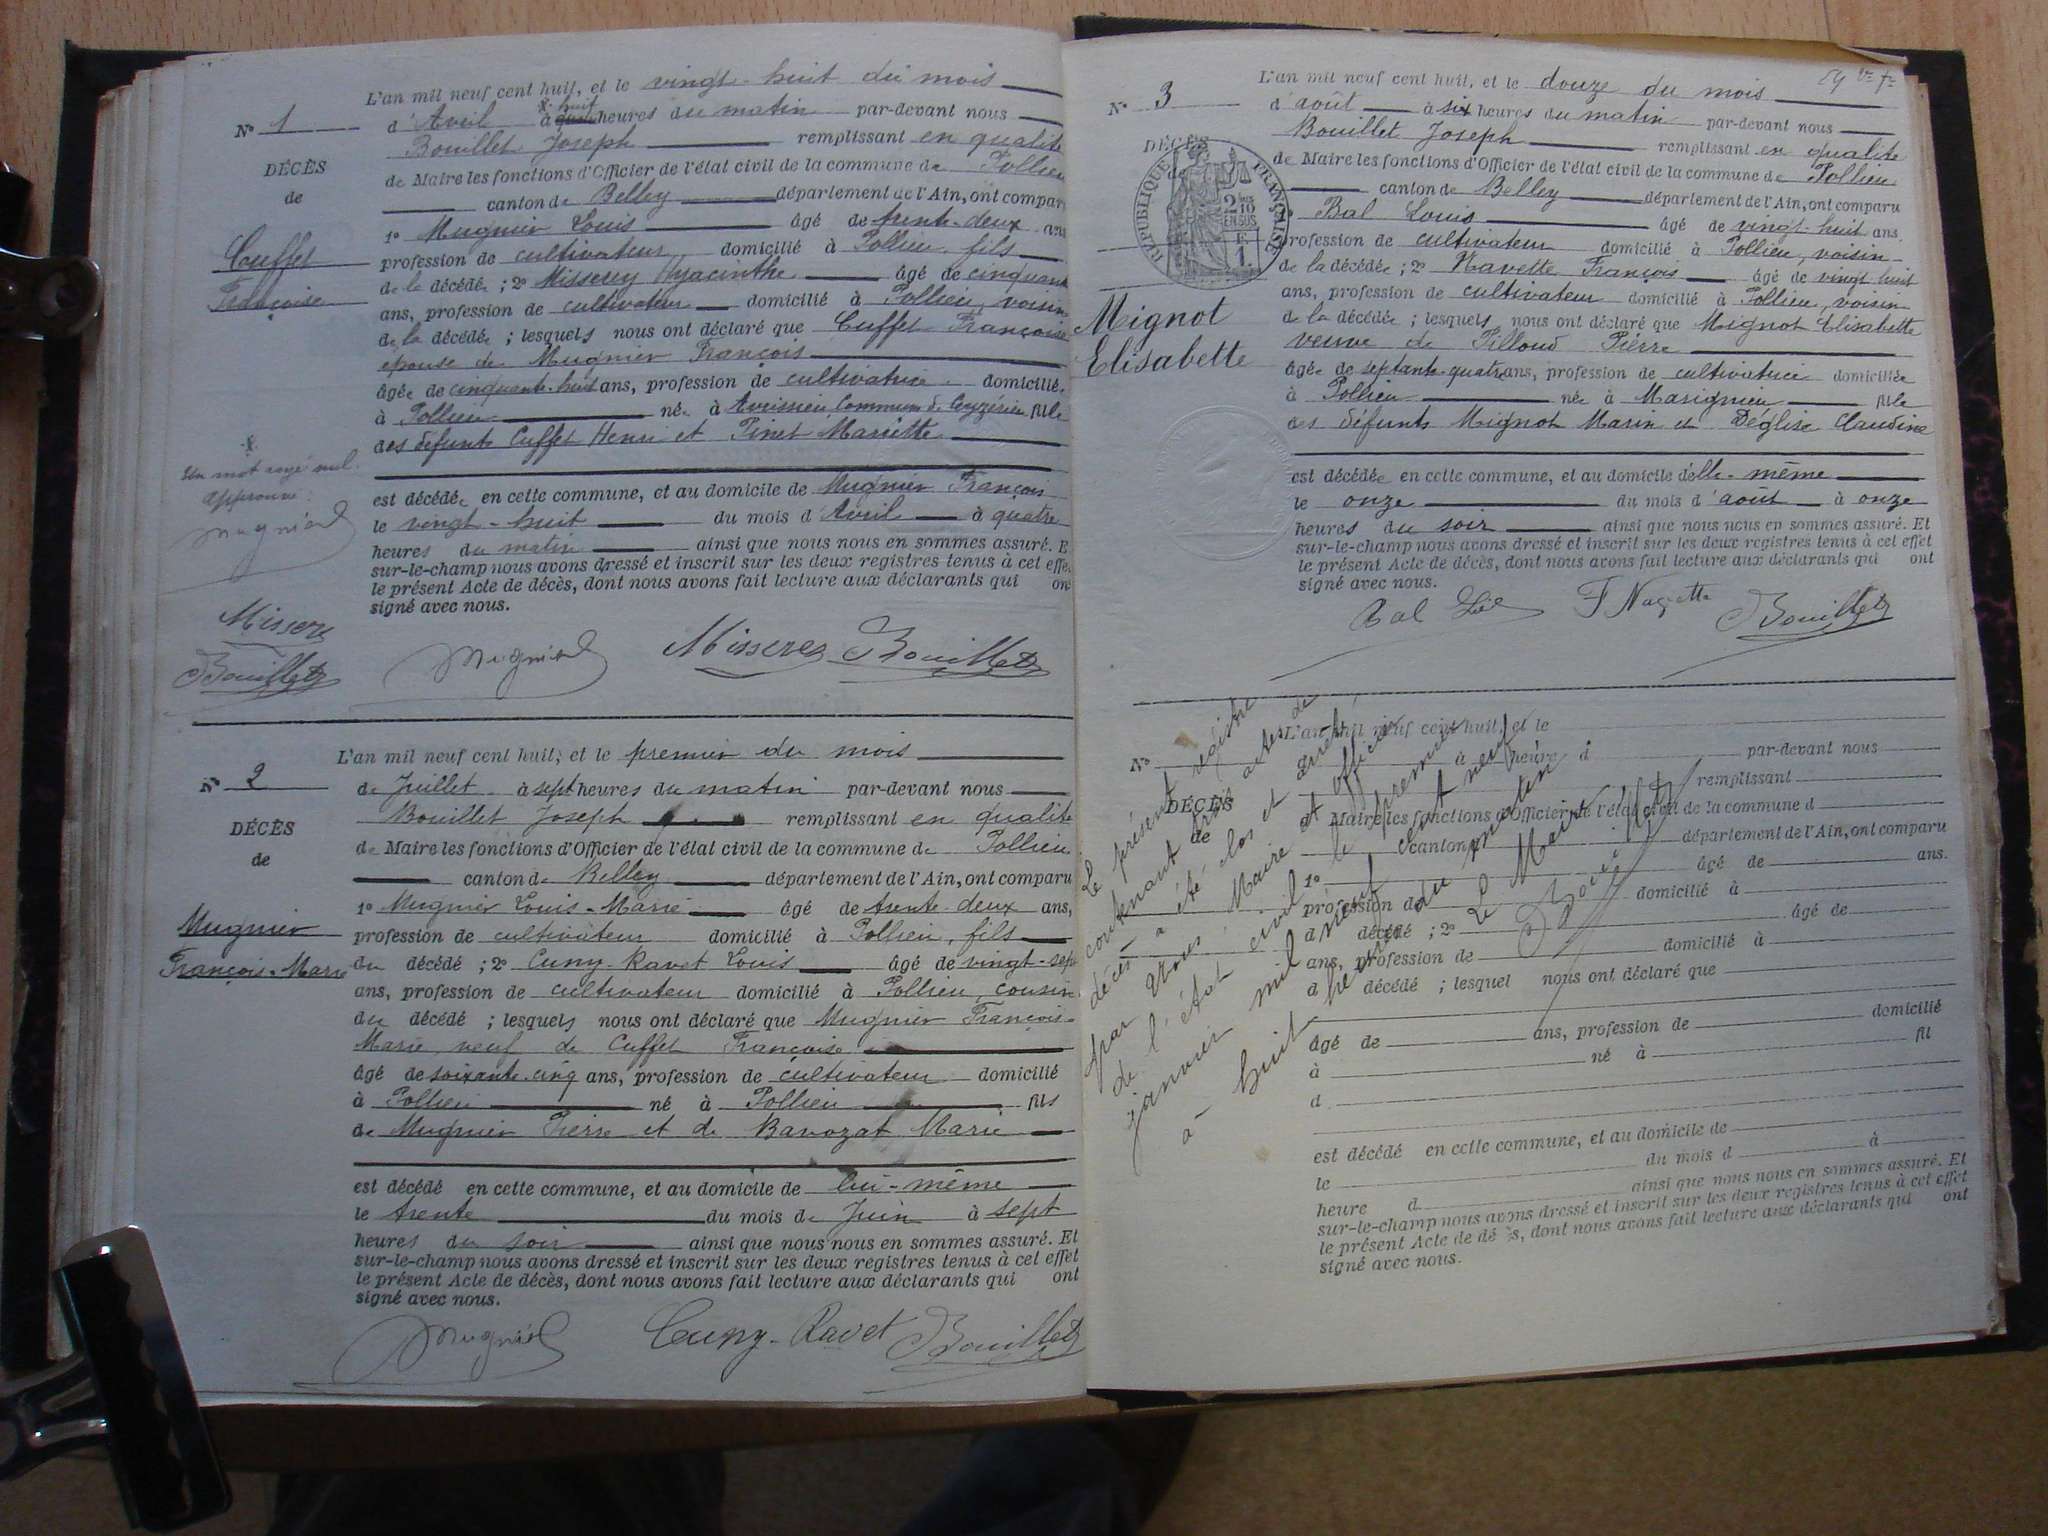 L'an mil neuf cent huit, et le vingt-huit du mois
N° 1
d'Avril à x huit heures du matin par-devant nous
Bouillet Joseph remplissant en qualité
DÉCÈS
de Maire les fonctions d'Officier de l'état civil de la commune de Pollieu
de
canton de Belley département de l'Ain, ont comparu
1° Mugnier Louis âgé de trente-deux ans
Cuffet
Françoise
profession de cultivateur domicilié à Pollieu, fils
de la décédée ; 2° Misserey Hyacinthe âgé de cinquante
ans, profession de cultivateur domicilié à Pollieu, voisin
de la décédée ; lesquels nous ont déclaré que Cuffet Françoise
épouse de Mugnier François
âgée de cinquante-huit ans, profession de cultivatrice domiciliée
à Pollieu née à Aveissieu, Commune de Ceyzérieu fille
des défunts Cuffet Henri et Pinet Mariette
x
Un mot rayé nul.
Approuvé :
Mugnier
est décédée en cette commune, et au domicile de Mugnier François
le vingt-huit du mois d'Avril à quatre
heures du matin ainsi que nous nous en sommes assuré. E
sur-le-champ nous avons dressé et inscrit sur les deux registres tenus à cet effe
le présent Acte de décès, dont nous avons fait lecture aux déclarants qui on
signé avec nous.
Misserey
Bouillet
Mugnier Misserey Bouillet
L'an mil neuf cent huit, et le premier du mois
N° 2
de Juillet à sept heures du matin par-devant nous
Bouillet Joseph remplissant en qualité
DÉCÈS
de Maire les fonctions d'Officier de l'état civil de la commune de Pollieu
de
canton de Belley département de l'Ain, ont comparu
1° Mugnier Louis-Marie âgé de trente-deux ans,
Mugnier
François-Marie
profession de cultivateur domicilié à Pollieu, fils
du décédé ; 2° Cuny-Ravet Louis âgé de vingt-sept
ans, profession de cultivateur domicilié à Pollieu, cousin
du décédé ; lesquels nous ont déclaré que Mugnier François-
Marie, veuf de Cuffet Françoise
âgé de soixante-cinq ans, profession de cultivateur domicilié
à Pollieu né à Pollieu fils
de Mugnier Pierre et de Bavozat Marie
est décédé en cette commune, et au domicile de lui-même
le trente du mois de Juin à sept
heures du soir ainsi que nous nous en sommes assuré. Et
sur-le-champ nous avons dressé et inscrit sur les deux registres tenus à cet effet
le présent Acte de décès, dont nous avons fait lecture aux déclarants qui ont
signé avec nous.
Mugnier Cuny-Ravet Bouillet
L'an mil neuf cent huit, et le douze du mois
N° 3
d'août à six heures du matin par-devant nous
Bouillet Joseph remplissant en qualité
DÉCÈS
de
RÉPUBLIQUE FRANÇAISE
2/10 EN SUS
F 1.
de Maire les fonctions d'Officier de l'état civil de la commune de Pollieu
canton de Belley département de l'Ain, ont comparu
Bal Louis âgé de vingt-huit ans
profession de cultivateur domicilié à Pollieu, voisin
de la décédée ; 2° Navette François âgé de vingt huit
ans, profession de cultivateur domicilié à Pollieu, voisin
Mignot
Elisabette
de la décédée ; lesquels nous ont déclaré que Mignot Elisabette
veuve de Pilloud Pierre
âgée de septante-quatre ans, profession de cultivatrice domiciliée
à Pollieu née à Marignieu fille
des défunts Mignot Marin et Déglise Claudine
est décédée en cette commune, et au domicile d'elle-même
le onze du mois d'août à onze
heures du soir ainsi que nous nous en sommes assuré. Et
sur-le-champ nous avons dressé et inscrit sur les deux registres tenus à cet effet
le présent Acte de décès, dont nous avons fait lecture aux déclarants qui ont
signé avec nous.
Bal F Navette Bouillet
L'an mil neuf cent huit, et le
N°
à heure d par-devant nous
remplissant
DÉCÈS
de
d Maire les fonctions d'Officier de l'état civil de la commune d
canton département de l'Ain, ont comparu
1° âgé de ans.
profession de domicilié à
d décédé ; 2° âgé de
ans, profession de domicilié à
d décédé ; lesquel nous ont déclaré que
âgé de ans, profession de domicilié
à né à fil
d
est décédé en cette commune, et au domicile de
le du mois d à
heure d ainsi que nous nous en sommes assuré. Et
sur-le-champ nous avons dressé et inscrit sur les deux registres tenus à cet effet
le présent Acte de décès, dont nous avons fait lecture aux déclarants qui ont
signé avec nous.
Le présent registre
contenant trois actes de
décès a été clos et arrêté,
par Nous, Maire et officier
de l'état civil le premier
janvier mil neuf cent neuf
à huit heures du matin
Le Maire
Bouillet